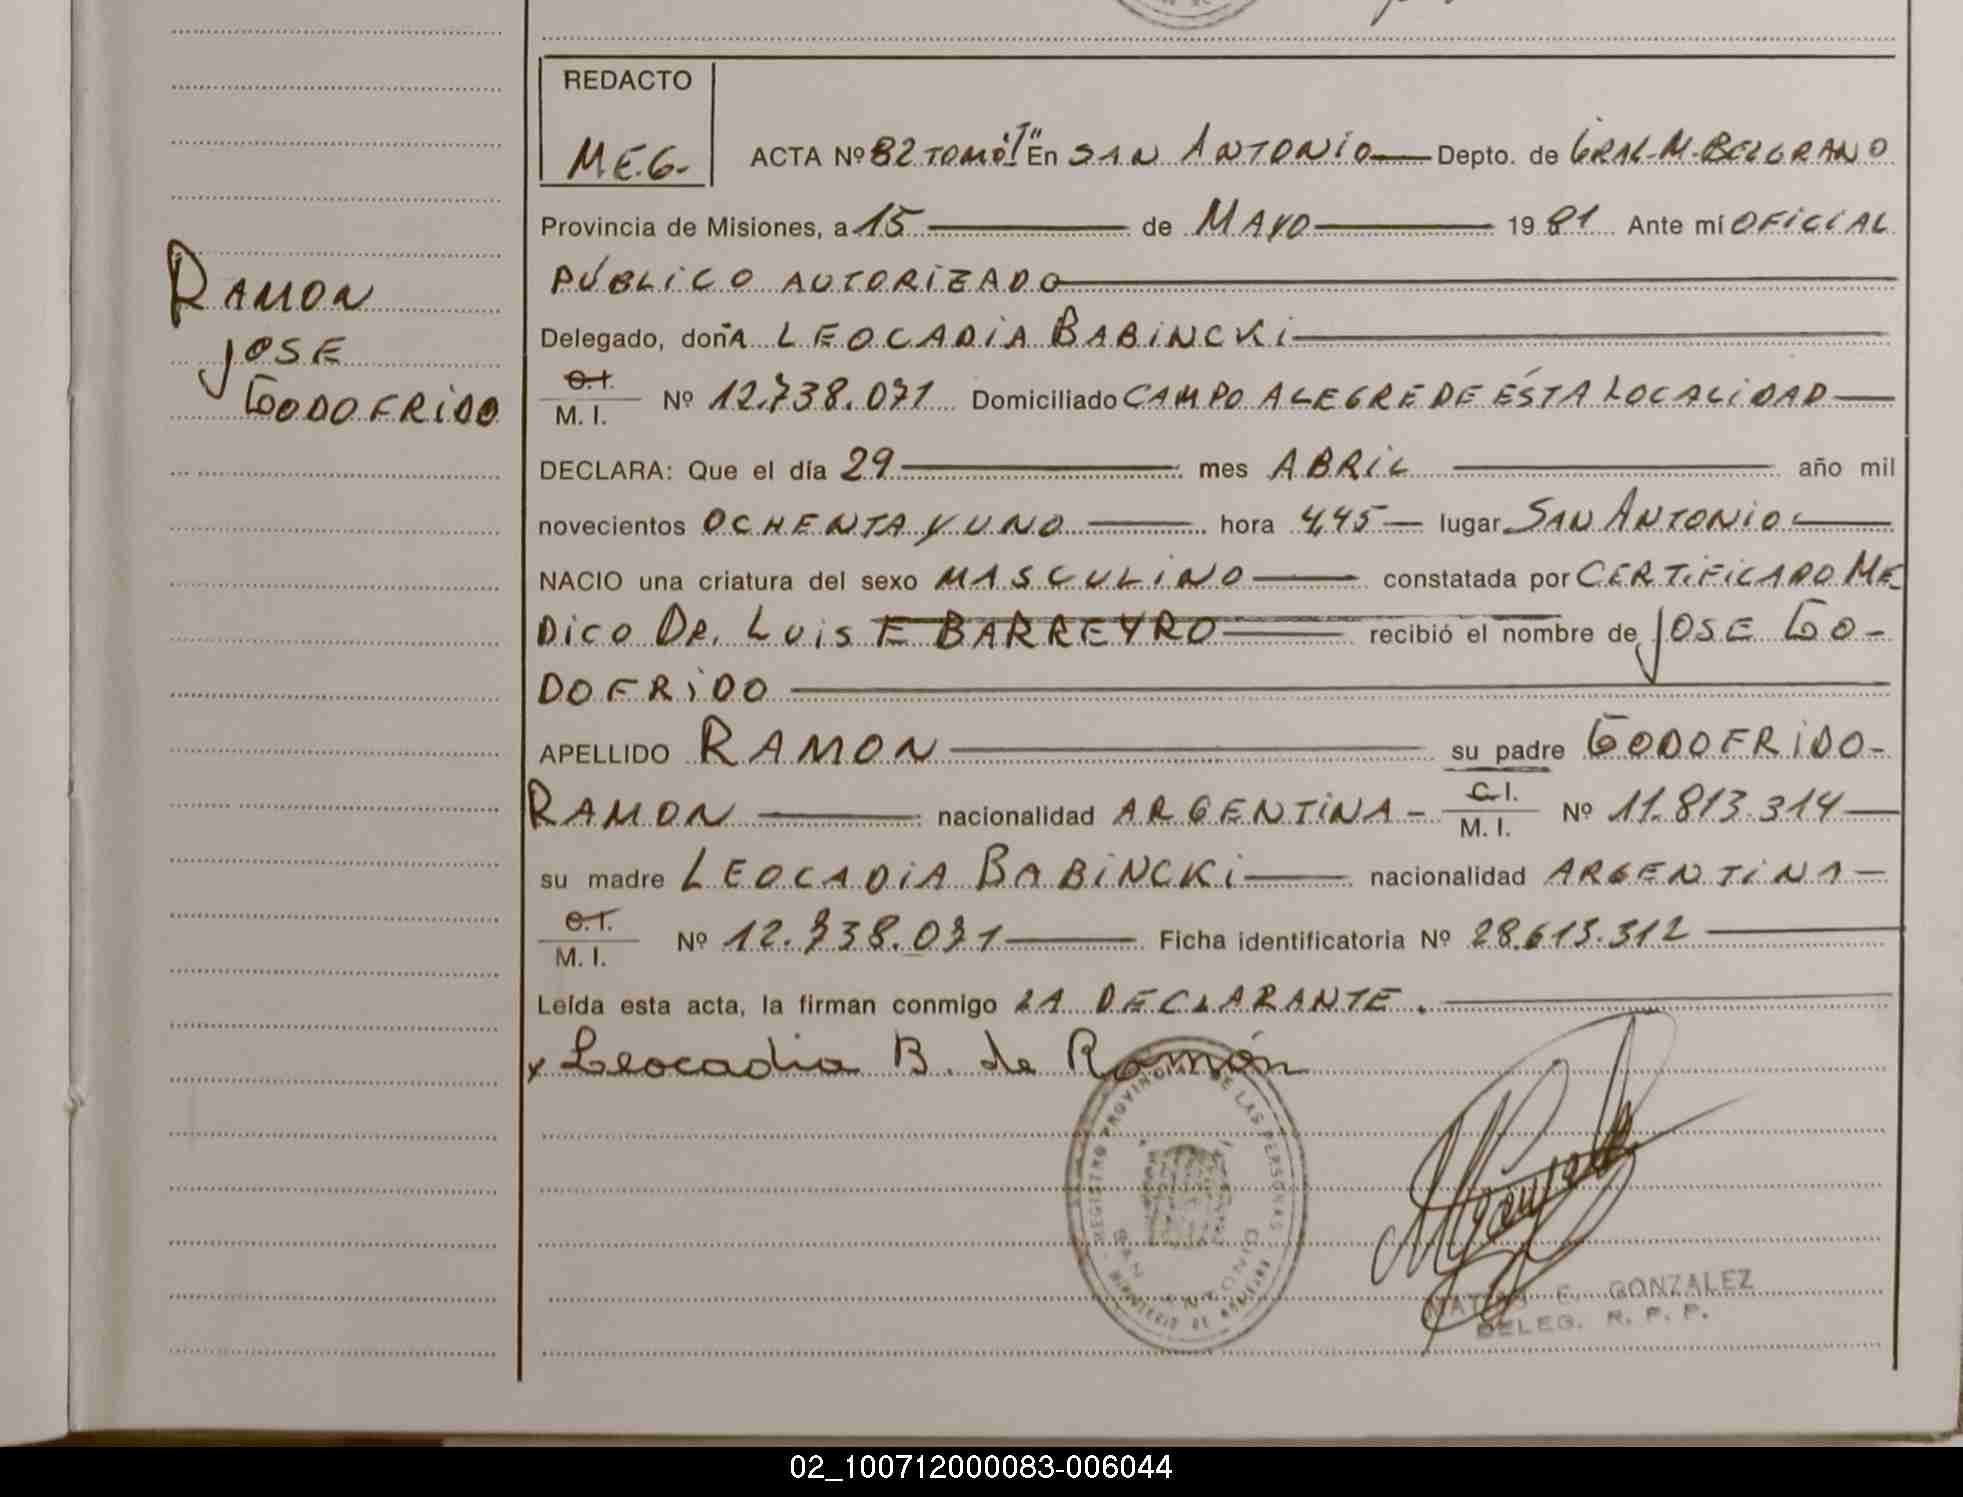 REDACTO
M.E.G.
ACTA Nº 82 TOMO "I" En SAN ANTONIO Depto. de GRAL-M-BELGRANO
Provincia de Misiones, a 15 de MAYO 1981 Ante mí OFICIAL
PÚBLICO AUTORIZADO
Delegado, doñA LEOCADIA BABINCKI
C.I.
M. I. Nº 12.738.071 Domiciliado CAMPO ALEGRE DE ÉSTA LOCALIDAD
DECLARA: Que el día 29 mes ABRIL año mil
novecientos OCHENTA Y UNO hora 4,45 lugar SAN ANTONIO
NACIO una criatura del sexo MASCULINO constatada por CERTIFICADO ME
DICO DR. LUIS E BARREYRO recibió el nombre de JOSE GO-
DOFRIDO
APELLIDO RAMON su padre GODOFRIDO-
RAMON nacionalidad ARGENTINA - C.I.
M. I. Nº 11.813.314
su madre LEOCADIA BABINCKI nacionalidad ARGENTINA -
C.I.
M. I. Nº 12.738.071 Ficha identificatoria Nº 28.613.312
Leída esta acta, la firman conmigo LA DECLARANTE.
x Leocadia B. de Ramón
RAMON
JOSE
GODOFRIDO
REGISTRO PROVINCIAL DE LAS PERSONAS
SAN ANTONIO
MINISTERIO DE
E. GONZALEZ
DELEG. R. P. P.
02_100712000083-006044